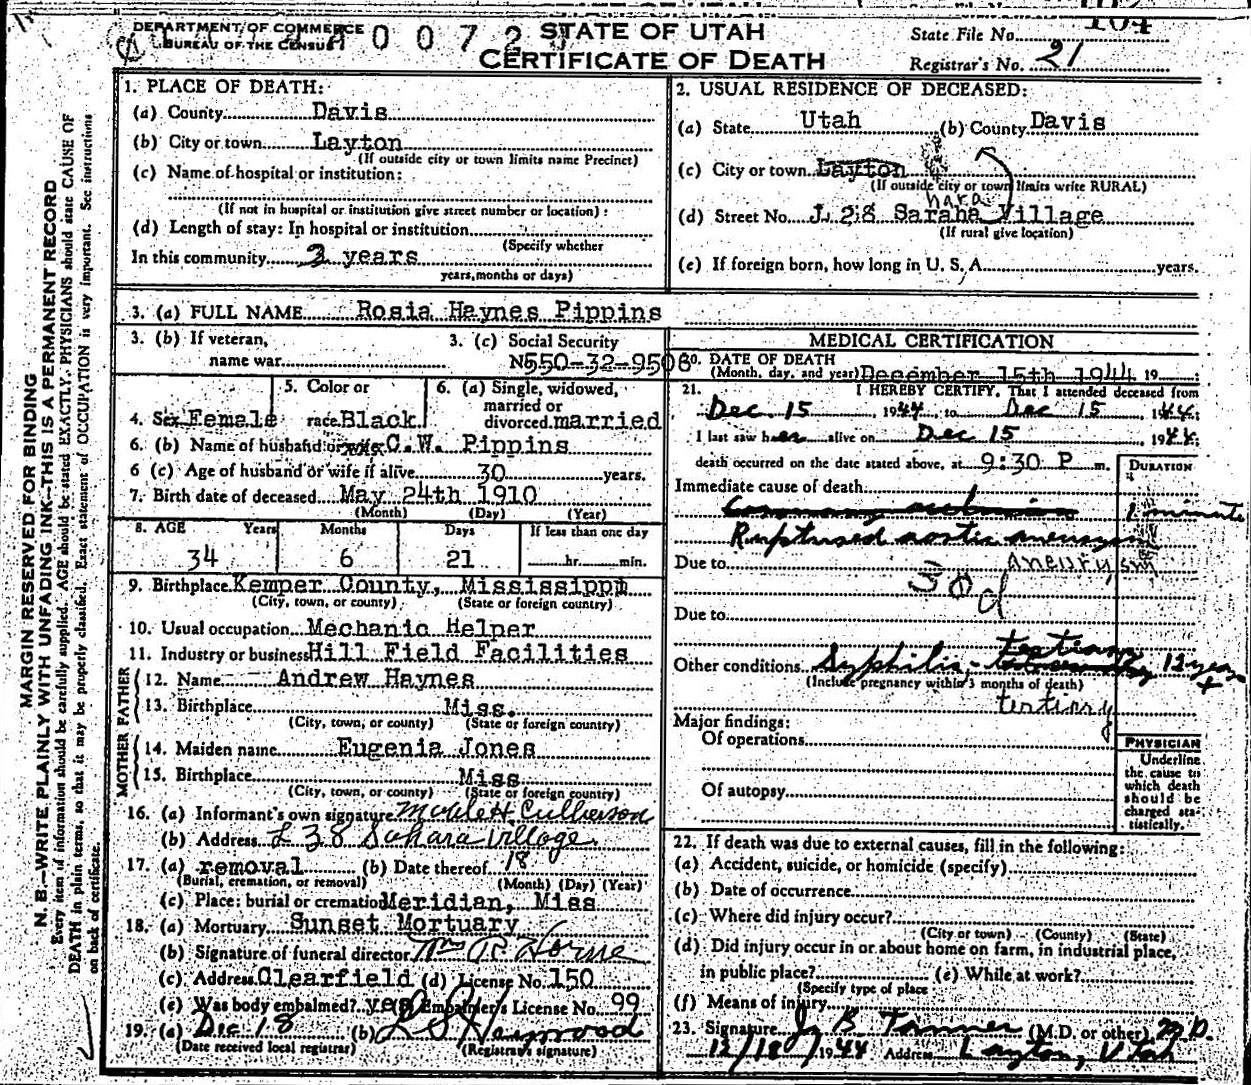 DEPARTMENT OF COMMERCE
BUREAU OF THE CENSUS
0 0 7 2
STATE OF UTAH
CERTIFICATE OF DEATH
State File No. 104
Registrar's No. 21
MARGIN RESERVED FOR BINDING
N. B.—WRITE PLAINLY WITH UNFADING INK—THIS IS A PERMANENT RECORD
Every item of information should be carefully supplied. AGE should be stated EXACTLY. PHYSICIANS should state CAUSE OF
DEATH in plain terms, so that it may be properly classified. Exact statement of OCCUPATION is very important. See instructions
on back of certificate.
1. PLACE OF DEATH:
(a) County Davis
(b) City or town Layton
(If outside city or town limits name Precinct)
(c) Name of hospital or institution:
(If not in hospital or institution give street number or location):
(d) Length of stay: In hospital or institution
(Specify whether
In this community 3 years
years, months or days)
2. USUAL RESIDENCE OF DECEASED:
(a) State Utah (b) County Davis
(c) City or town Layton
(If outside city or town limits write RURAL)
hara
(d) Street No. J 28 Saraha Village
(If rural give location)
(e) If foreign born, how long in U. S. A. years.
3. (a) FULL NAME Rosia Haynes Pippins
3. (b) If veteran,
name war
3. (c) Social Security
No 550-32-9506
4. Sex Female
5. Color or
race Black
6. (a) Single, widowed,
married or
divorced married
6. (b) Name of husband or wife C.W. Pippins
6 (c) Age of husband or wife if alive 30 years.
7. Birth date of deceased May 24th 1910
(Month) (Day) (Year)
8. AGE Years Months Days If less than one day
34 6 21 hr. min.
9. Birthplace Kemper County, Mississippi
(City, town, or county) (State or foreign country)
10. Usual occupation Mechanic Helper
11. Industry or business Hill Field Facilities
FATHER
12. Name Andrew Haynes
13. Birthplace Miss.
(City, town, or county) (State or foreign country)
MOTHER
14. Maiden name Eugenia Jones
15. Birthplace Miss
(City, town, or county) (State or foreign country)
16. (a) Informant's own signature H. Culberson
(b) Address L 38 Sahara Village
17. (a) removal (b) Date thereof 18
(Burial, cremation, or removal) (Month) (Day) (Year)
(c) Place: burial or cremation Meridian, Miss
18. (a) Mortuary Sunset Mortuary
(b) Signature of funeral director Wm R. Horne
(c) Address Clearfield (d) License No. 150
(e) Was body embalmed? yes Embalmer's License No. 99
19. (a) Dec 18 (b) L S Heywood
(Date received local registrar) (Registrar's signature)
MEDICAL CERTIFICATION
20. DATE OF DEATH
(Month, day, and year) December 15th 1944 19
21. I HEREBY CERTIFY, That I attended deceased from
Dec. 15, 1944, to Dec 15, 1944.
I last saw her alive on Dec 15, 1944.
death occurred on the date stated above, at 9:30 P m.
DURATION
Immediate cause of death
Coronary occlusion 1 minute
Ruptured aortic aneurysm
Due to aneurysm
30 d
Due to
tertiary
Other conditions Syphilis, 12 years +
(Include pregnancy within 3 months of death)
tertiary
Major findings:
Of operations
Of autopsy
PHYSICIAN
Underline
the cause to
which death
should be
charged sta-
tistically.
22. If death was due to external causes, fill in the following:
(a) Accident, suicide, or homicide (specify)
(b) Date of occurrence
(c) Where did injury occur?
(City or town) (County) (State)
(d) Did injury occur in or about home on farm, in industrial place,
in public place? (e) While at work?
(Specify type of place
(f) Means of injury
23. Signature J B Tanner (M.D. or other) M.D.
12/18/1944 Address Layton, Utah